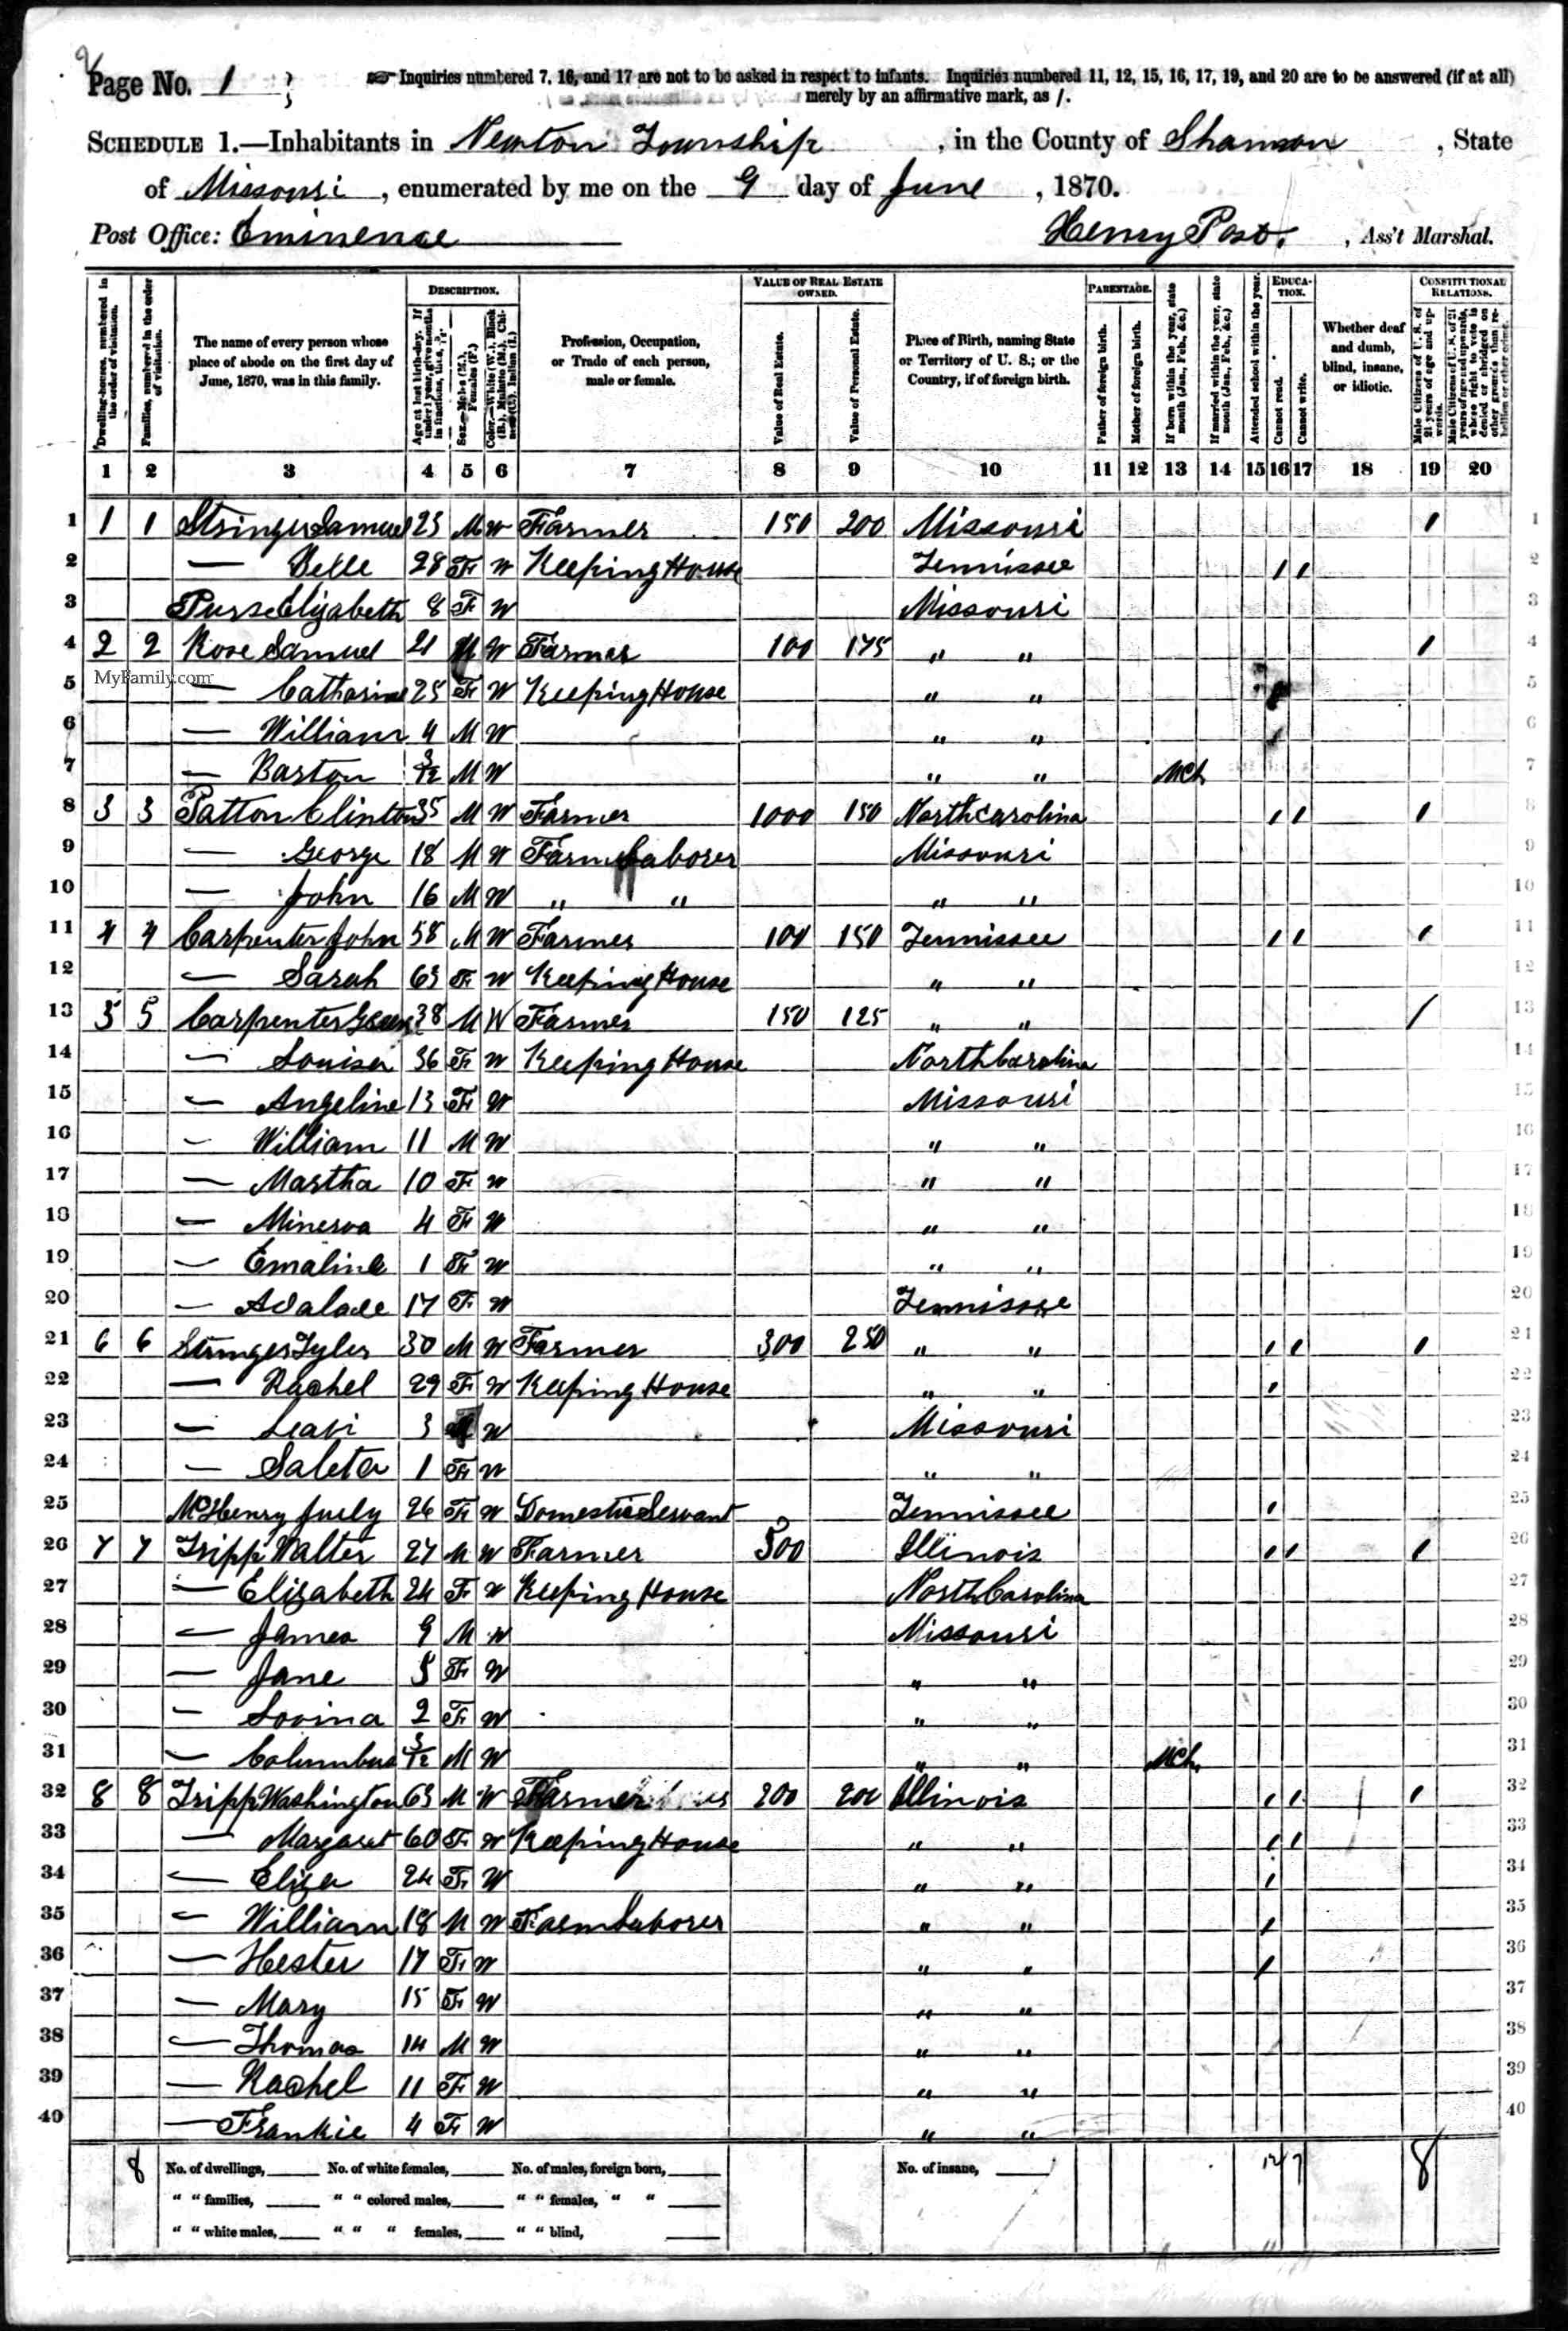 Page No. 1
☞ Inquiries numbered 7, 16, and 17 are not to be asked in respect to infants. Inquiries numbered 11, 12, 15, 16, 17, 19, and 20 are to be answered (if at all)
merely by an affirmative mark, as /.
SCHEDULE 1.—Inhabitants in Newton Township, in the County of Shannon, State
of Missouri, enumerated by me on the 9 day of June, 1870.
Post Office: Eminence Henry Post, Ass't Marshal.
Dwelling-houses, numbered in the order of visitation.
Families, numbered in the order of visitation.
The name of every person whose place of abode on the first day of June, 1870, was in this family.
DESCRIPTION.
Age at last birth-day. If under 1 year, give months in fractions, thus, 3/12.
Sex.—Males (M.), Females (F.)
Color.—White (W.), Black (B.), Mulatto (M.), Chinese (C.), Indian (I.)
Profession, Occupation, or Trade of each person, male or female.
VALUE OF REAL ESTATE OWNED.
Value of Real Estate.
Value of Personal Estate.
Place of Birth, naming State or Territory of U. S.; or the Country, if of foreign birth.
PARENTAGE.
Father of foreign birth.
Mother of foreign birth.
If born within the year, state month (Jan., Feb., &c.)
If married within the year, state month (Jan., Feb., &c.)
Attended school within the year.
EDUCATION.
Cannot read.
Cannot write.
Whether deaf and dumb, blind, insane, or idiotic.
CONSTITUTIONAL RELATIONS.
Male Citizens of U. S. of 21 years of age and upwards.
Male Citizens of U. S. of 21 years of age and upwards, whose right to vote is denied or abridged on other grounds than rebellion or other crime.
1 2 3 4 5 6 7 8 9 10 11 12 13 14 15 16 17 18 19 20
1 1 1 Stringer Samuel 23 M W Farmer 150 200 Missouri / 1
2 — Belle 28 F W Keeping House Tennissee / / 2
3 Purse Elizabeth 8 F W Missouri 3
4 2 2 Rose Samuel 21 M W Farmer 100 175 " " / 4
MyFamily.com
5 — Catharine 25 F W Keeping House " " / 5
6 — William 4 M W " " 6
7 — Barton 3/12 M W " " Mch 7
8 3 3 Patton Clinton 35 M W Farmer 1000 150 North Carolina / / / 8
9 — George 18 M W Farm Laborer Missouri 9
10 — John 16 M W " " " " 10
11 4 4 Carpenter John 58 M W Farmer 100 150 Tennissee / / / 11
12 — Sarah 63 F W Keeping House " " 12
13 5 5 Carpenter Green 38 M W Farmer 150 125 " " / 13
14 — Louisa 36 F W Keeping House North Carolina 14
15 — Angeline 13 F W Missouri 15
16 — William 11 M W " " 16
17 — Martha 10 F W " " 17
18 — Minerva 4 F W " " 18
19 — Emaline 1 F W " " 19
20 — Adalade 17 F W Tennissee 20
21 6 6 Stringer Tyler 30 M W Farmer 300 250 " " / / / 21
22 — Rachel 29 F W Keeping House " " / 22
23 — Leavi 3 M W Missouri 23
24 — Saleta 1 F W " " 24
25 McHenry July 26 F W Domestic Servant Tennissee / 25
26 7 7 Tripp Walter 27 M W Farmer 500 Illinois / / / 26
27 — Elizabeth 24 F W Keeping House North Carolina 27
28 — James 9 M W Missouri 28
29 — Jane 5 F W " " 29
30 — Lovina 2 F W " " 30
31 — Columbus 3/12 M W " " Mch 31
32 8 8 Tripp Washington 63 M W Farmer 200 200 Illinois / / / 32
33 — Margaret 60 F W Keeping House " " / / 33
34 — Eliza 24 F W " " / 34
35 — William 18 M W Farm Laborer " " / 35
36 — Hester 17 F W " " / 36
37 — Mary 15 F W " " 37
38 — Thomas 14 M W " " 38
39 — Rachel 11 F W " " 39
40 — Frankie 4 F W " " 40
8 No. of dwellings, No. of white females, No. of males, foreign born, No. of insane, 12/7 8
" " families, " " colored males, " " females, " "
" " white males, " " " females, " " blind,